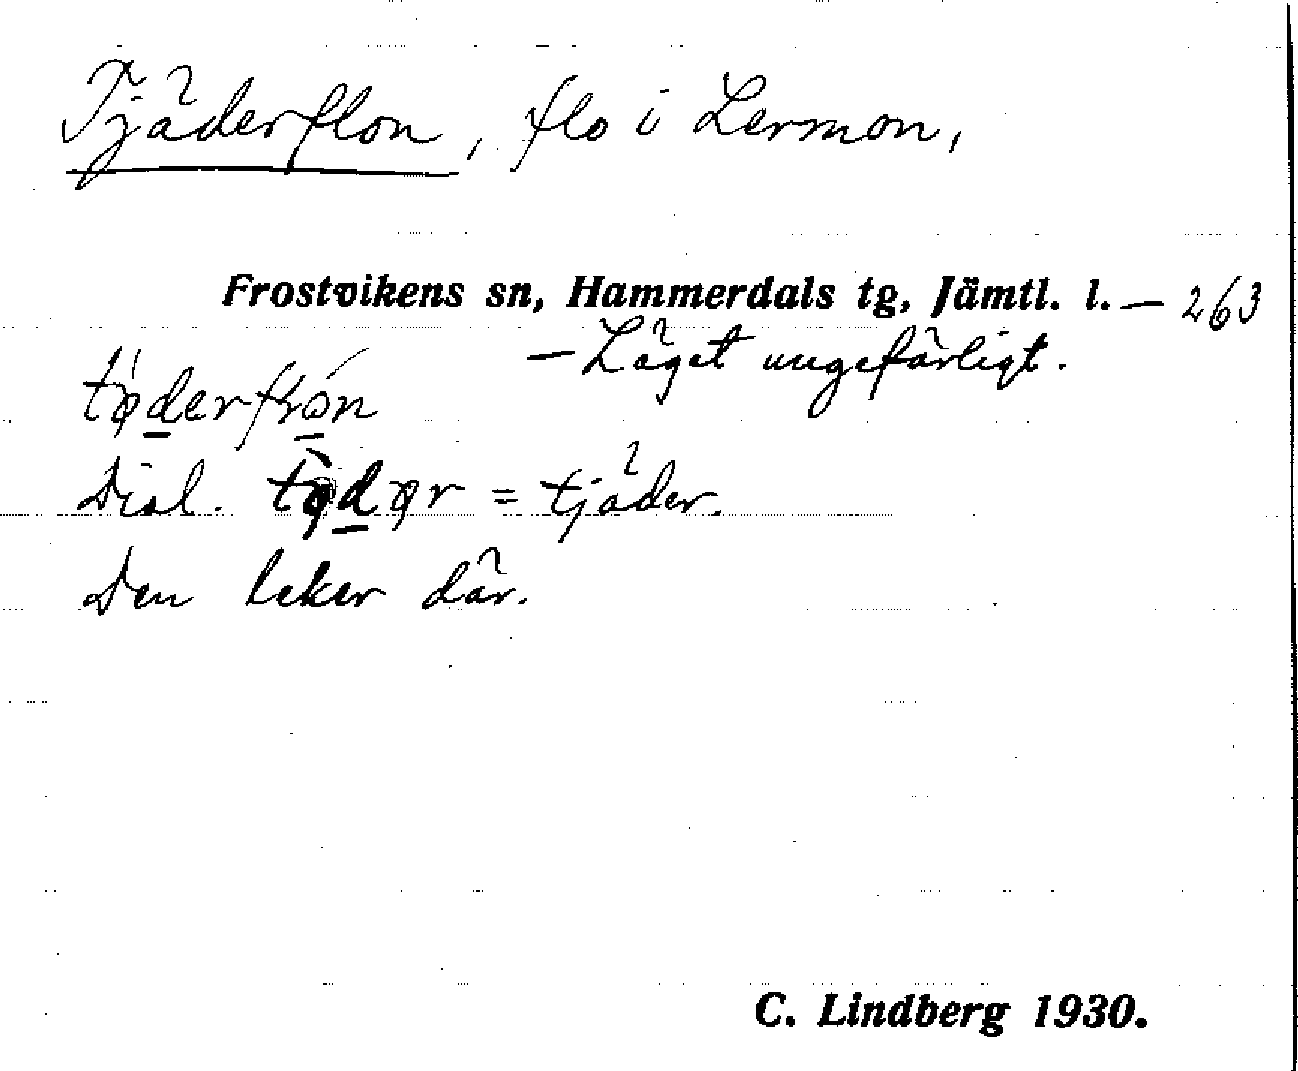 Tjäderflon, flo i Lermon,
Frostvikens sn, Hammerdals tg, Jämtl. l. — 263
— Läget ungefärligt.
tǫ́derfrón
Dial. tǫ̀dǫr = tjäder.
Den leker där.
C. Lindberg 1930.